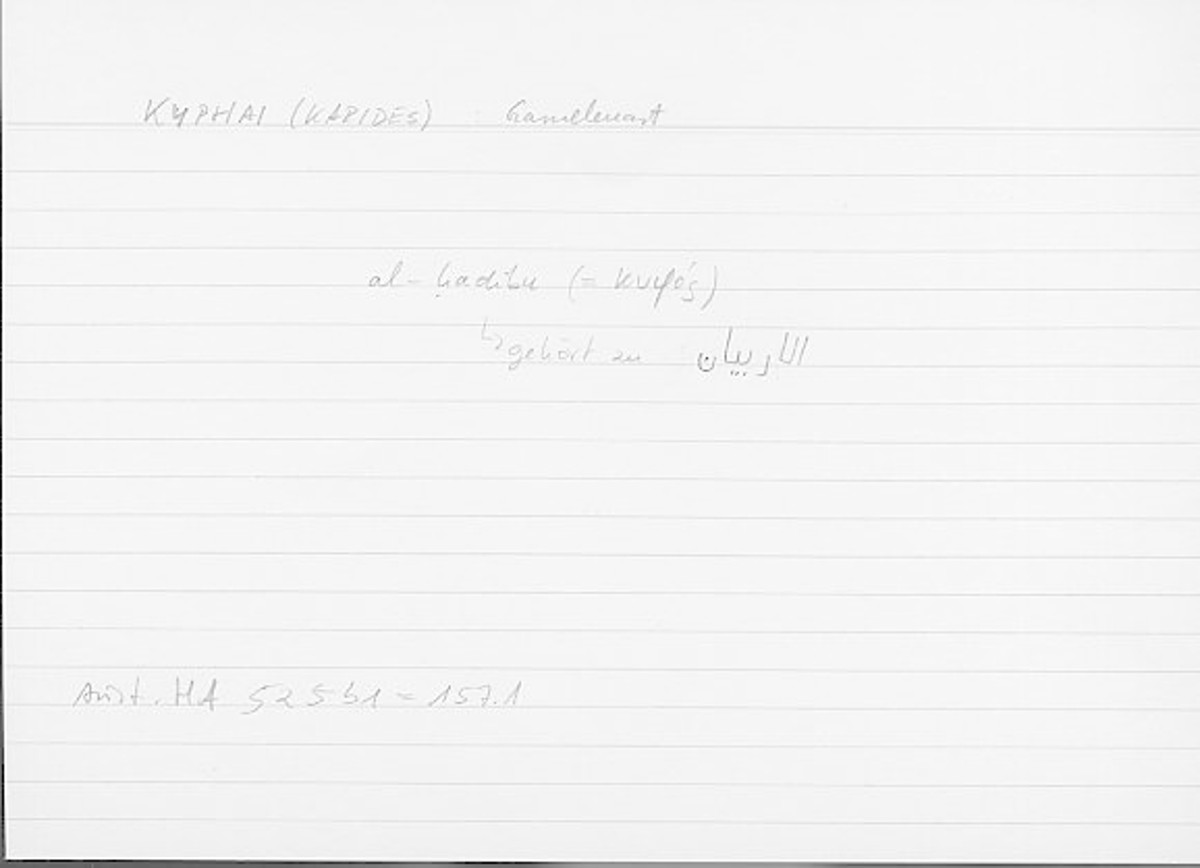 KYPHAI (KARIDES) : Garnelenart
al-ḥadibu (= κυφός)
↳ gehört zu الاربيان
Arist. HA 525 b1 = 157.1